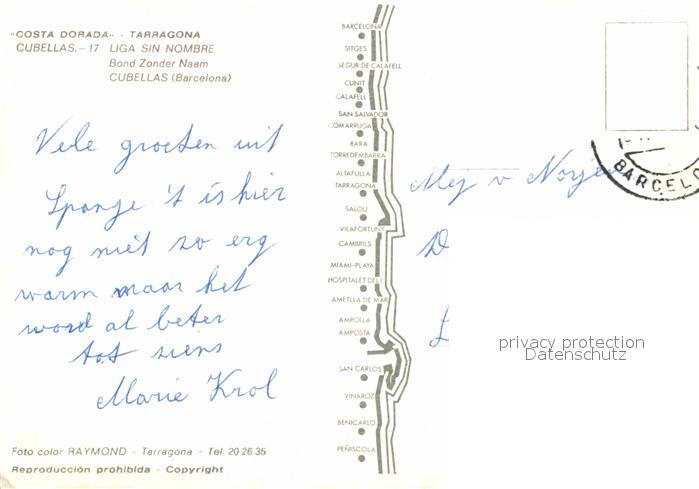 "COSTA DORADA" - TARRAGONA
CUBELLAS.-17 LIGA SIN NOMBRE
Bond Zonder Naam
CUBELLAS (Barcelona)
Vele groeten uit
Spanje 't is hier
nog niet zo erg
warm maar het
word al beter
tot ziens
Marie Krol
Foto color RAYMOND - Tarragona - Tel 20 26 35
Reproducción prohibida - Copyright
BARCELONA
SITGES
SEGUR DE CALAFELL
CUNIT
CALAFELL
SAN SALVADOR
COMARRUGA
BARA
TORREDEMBARRA
ALTAFULLA
TARRAGONA
SALOU
VILAFORTUNY
CAMBRILS
MIAMI-PLAYA
HOSPITALET DEL I
AMETLLA DE MAR
AMPOLLA
AMPOSTA
SAN CARLOS
VINAROZ
BENICARLO
PEÑISCOLA
BARCELO
Mej v
D
L
privacy protection
Datenschutz